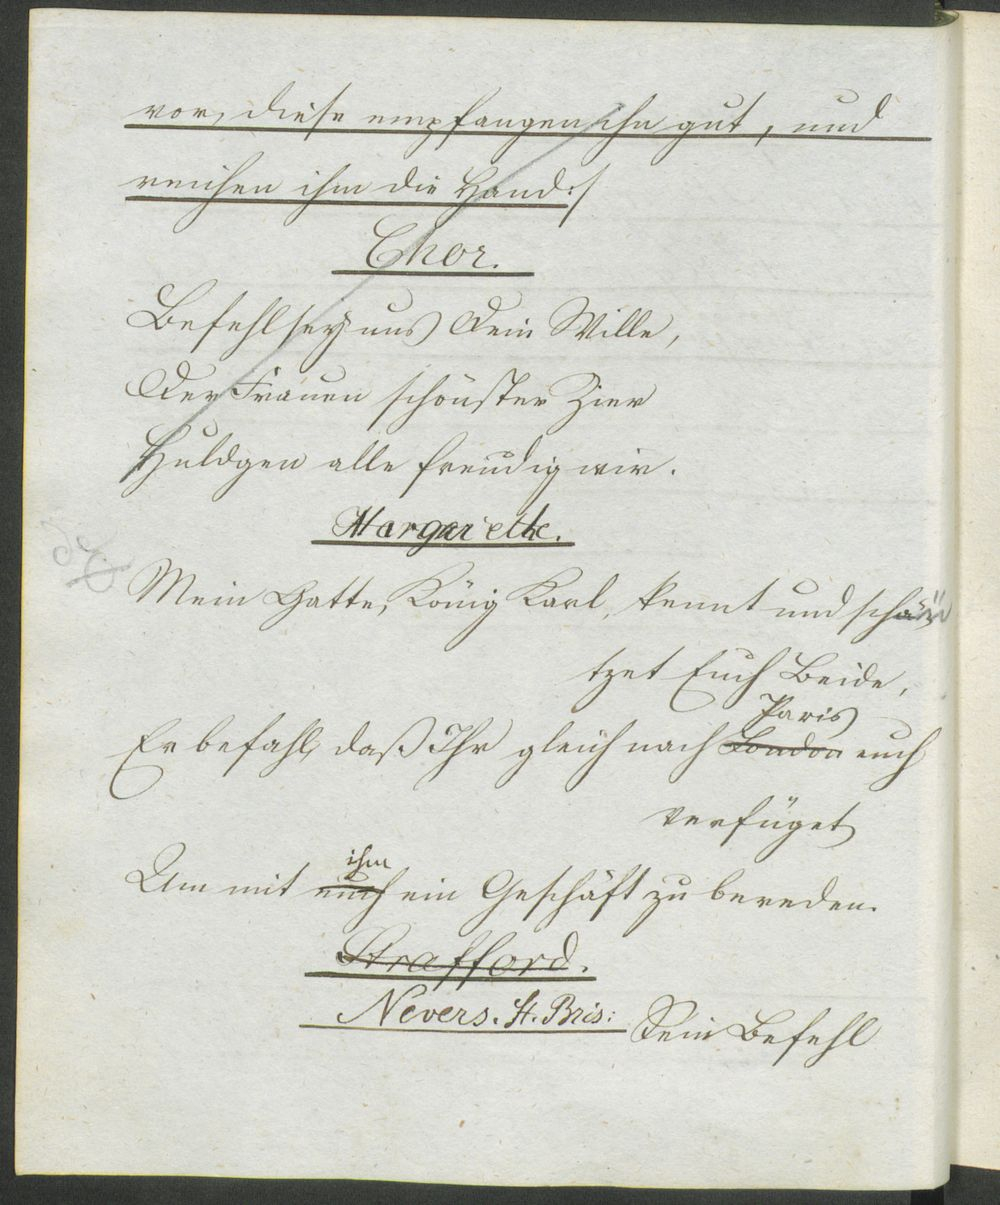 vor, diese empfangen ihn gut, und
reichen ihm die Hand:/
Chor.
Befehl sey uns Dein Wille,
Der Frauen schönster Zier
Huldgen alle freudig wir.
Margarethe.
Mein Gatte, König Karl, kennt und schä-
tzet Euch Beide,
Paris
Er befahl, daß Ihr gleich nach London euch
verfüget
ihm
Um mit euch ein Geschäft zu bereden.
Strafford.
Nevers. St. Bris:
Sein Befehl